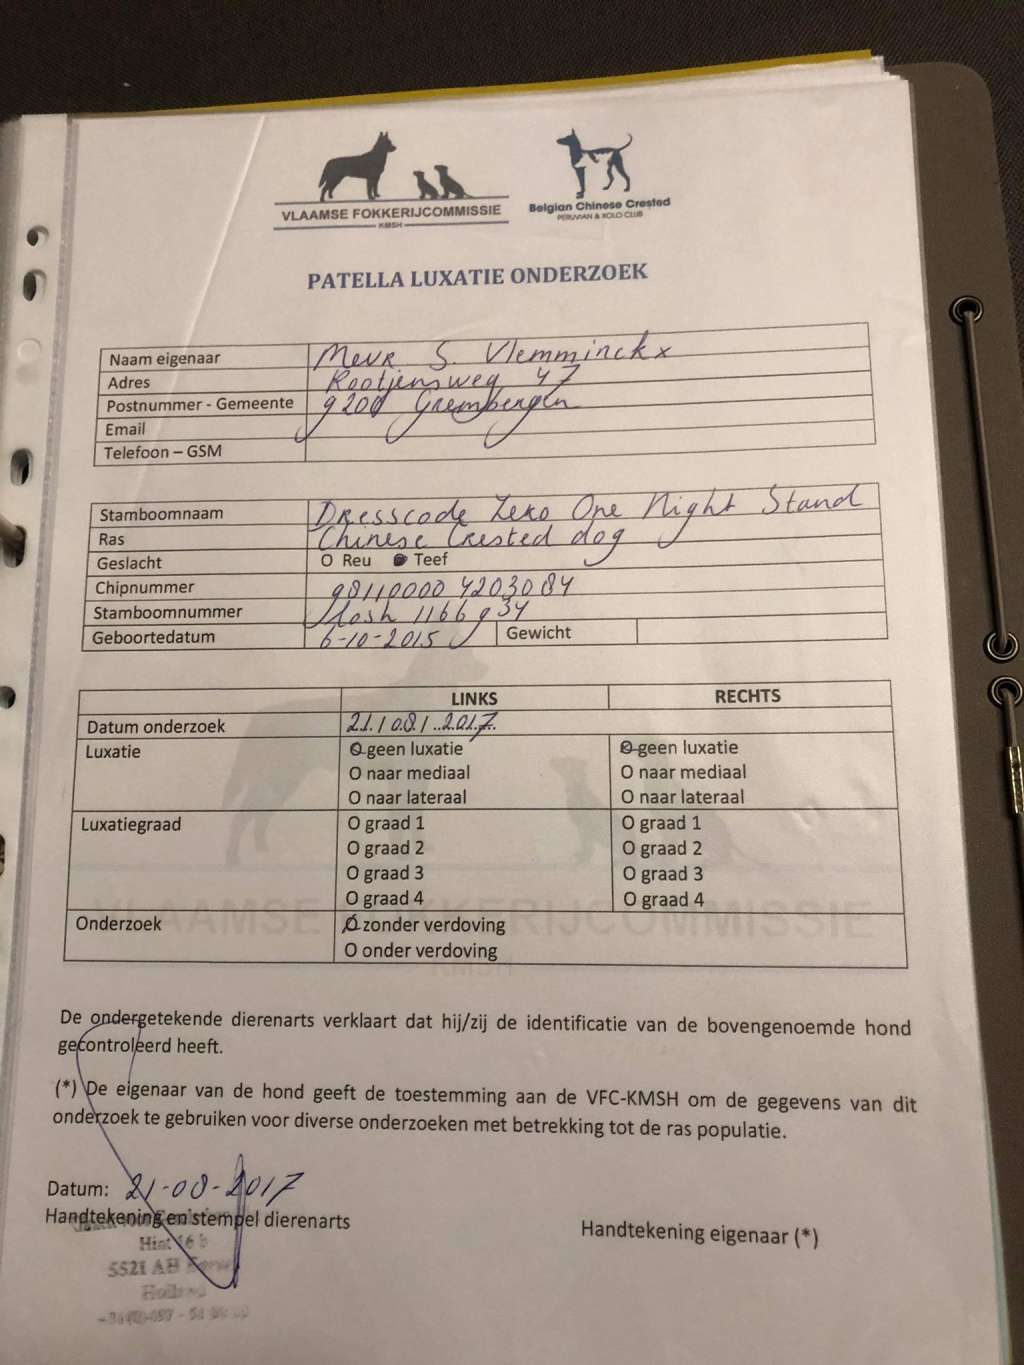 VLAAMSE FOKKERIJCOMMISSIE
KMSH
Belgian Chinese Crested
PERUVIAN & XOLO CLUB
PATELLA LUXATIE ONDERZOEK
Naam eigenaar Mevr S. Vlemminckx
Adres Rootjensweg 47
Postnummer - Gemeente 9200 Grembergen
Email
Telefoon – GSM
Stamboomnaam Dresscode Zero One Night Stand
Ras Chinese Crested dog
Geslacht O Reu Teef
Chipnummer 98110000 4203084
Stamboomnummer losh 1166934
Geboortedatum 6-10-2015 Gewicht
LINKS RECHTS
Datum onderzoek 21/08/2017
Luxatie O geen luxatie O geen luxatie
O naar mediaal O naar mediaal
O naar lateraal O naar lateraal
Luxatiegraad O graad 1 O graad 1
O graad 2 O graad 2
O graad 3 O graad 3
O graad 4 O graad 4
Onderzoek O zonder verdoving
O onder verdoving
VLAAMSE FOKKERIJCOMMISSIE
KMSH
De ondergetekende dierenarts verklaart dat hij/zij de identificatie van de bovengenoemde hond
gecontroleerd heeft.
(*) De eigenaar van de hond geeft de toestemming aan de VFC-KMSH om de gegevens van dit
onderzoek te gebruiken voor diverse onderzoeken met betrekking tot de ras populatie.
Datum: 21-08-2017
Handtekening en stempel dierenarts Handtekening eigenaar (*)
Hint 16 b
5521 AH
Holland